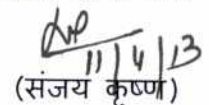 11/4/13
(संजय कृष्ण)